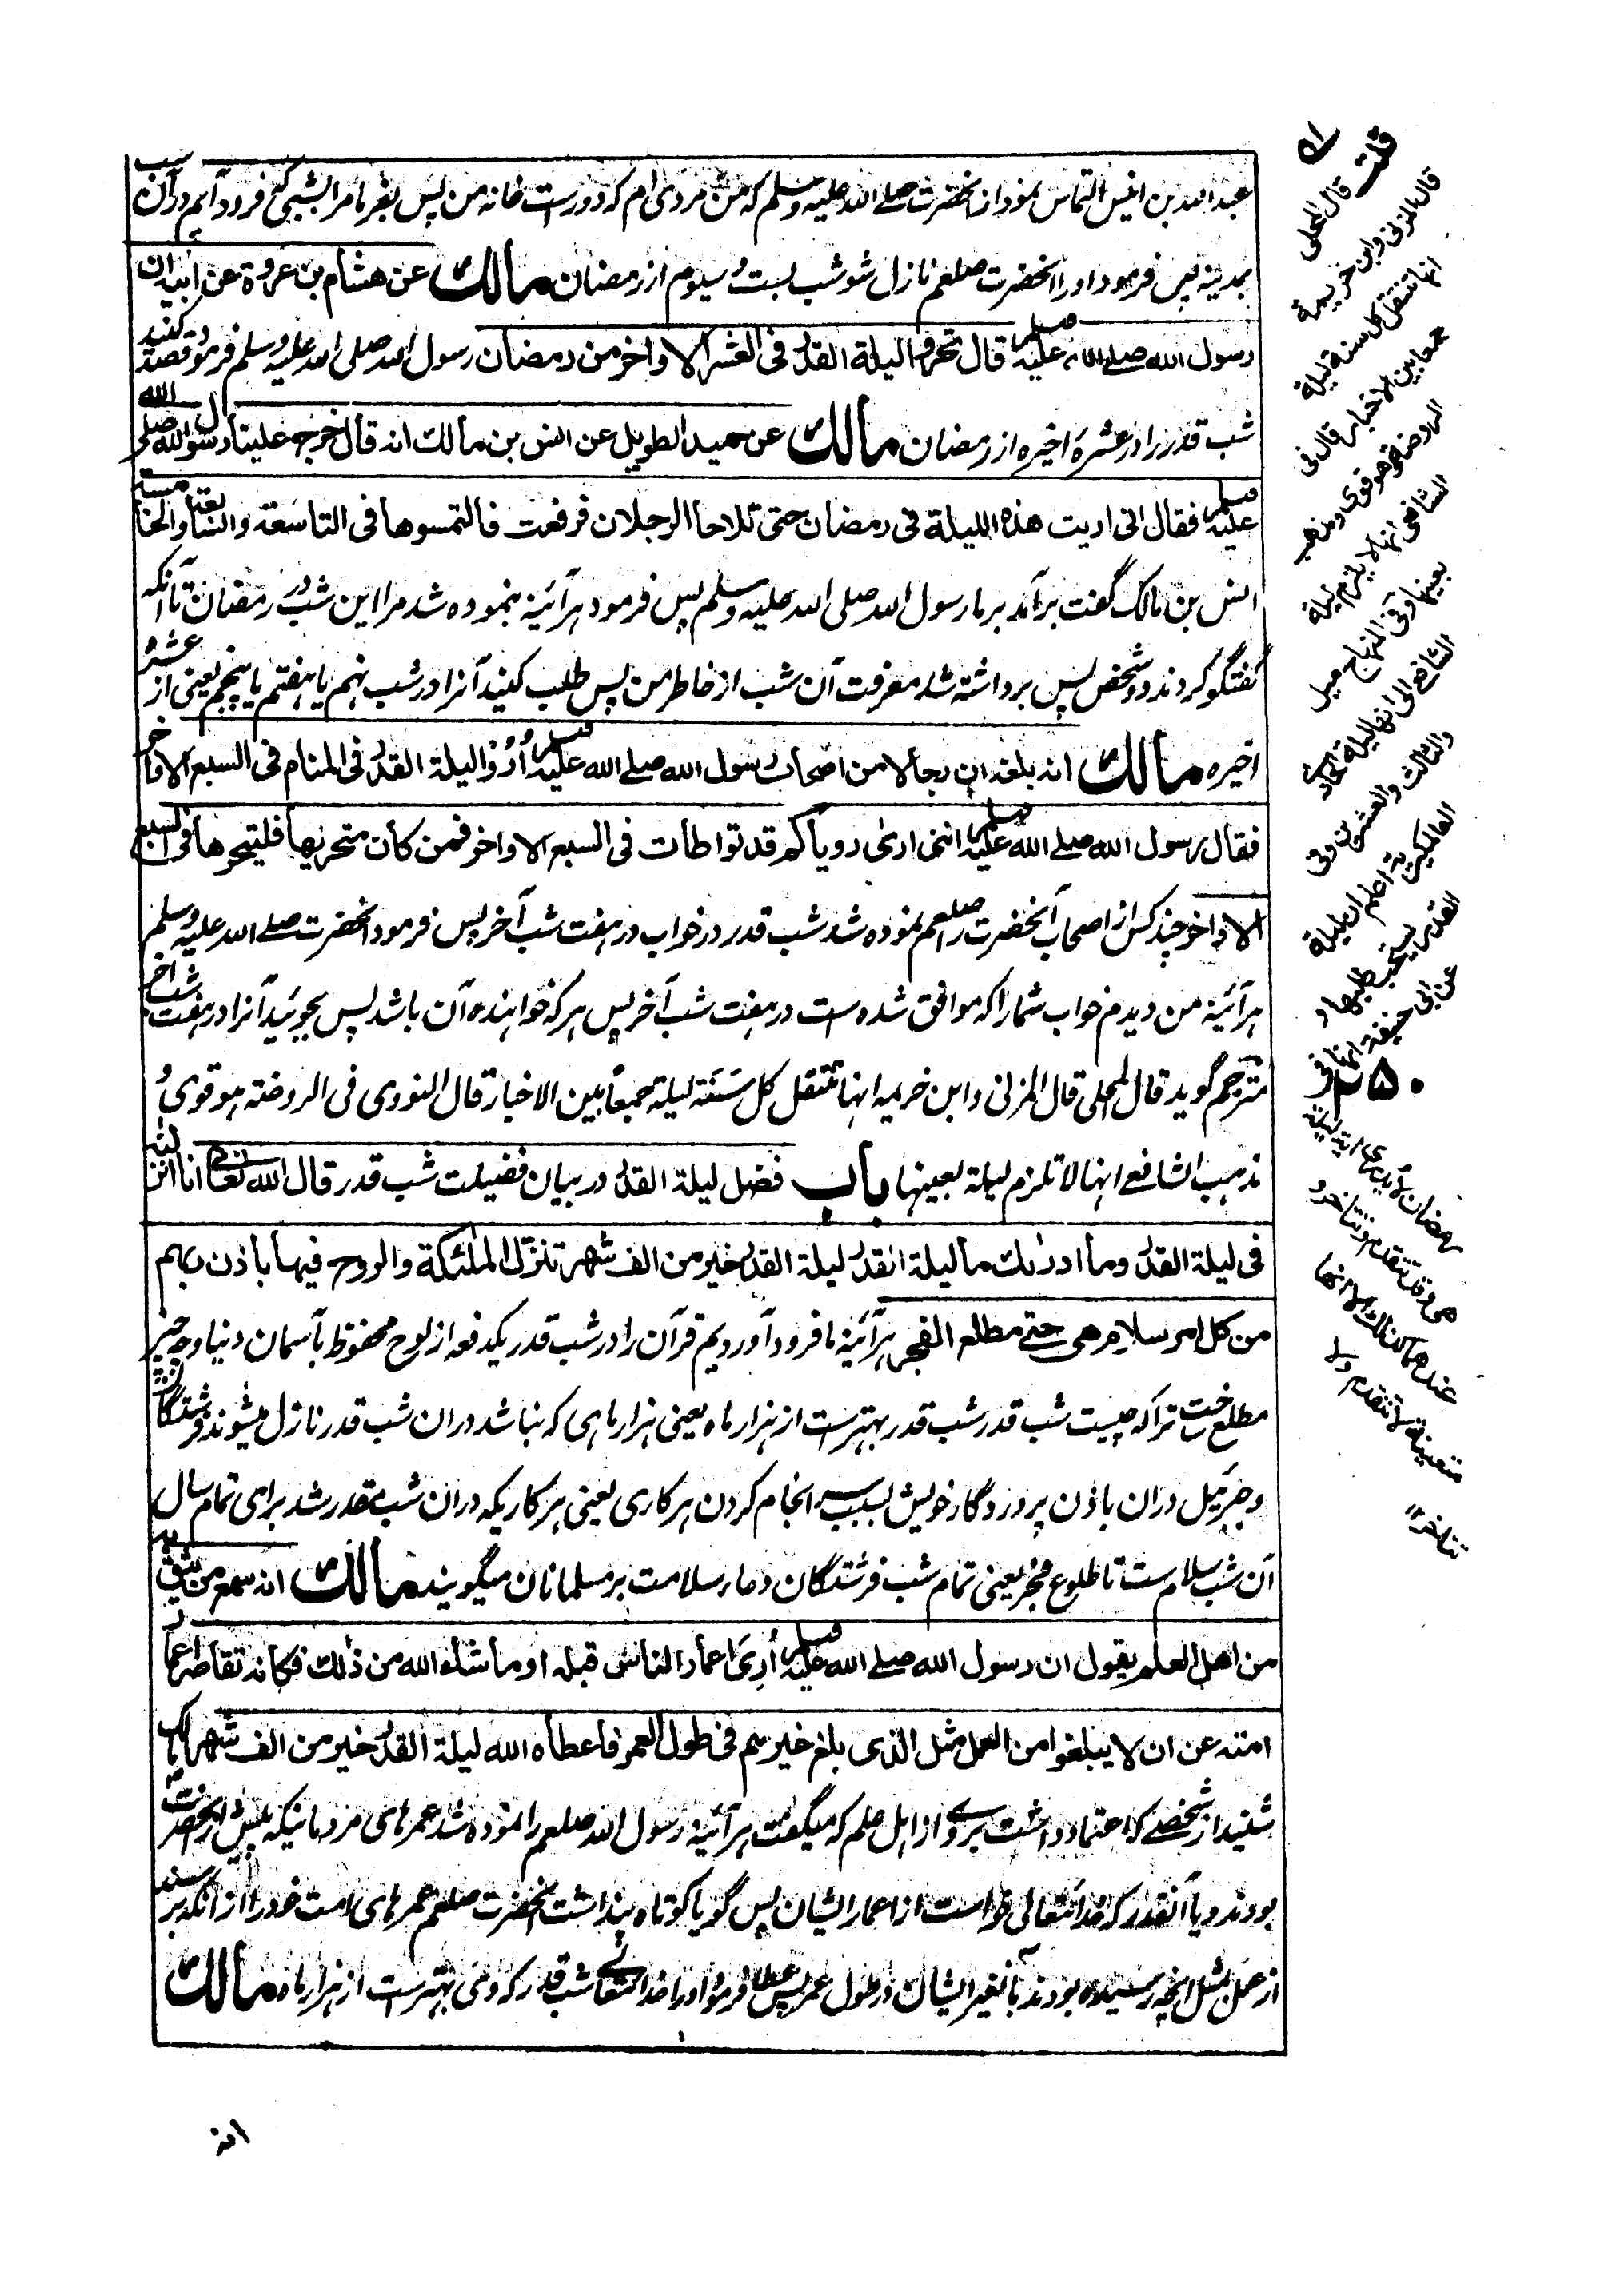 عبد الله بن انیس التماس نمود از آنحضرت صلے اللہ علیہ وسلم کہ من مردی ام کہ دورست خانہ من پس بفرما مرا بشبی کہ فرود آیم در آن شب
بمدینہ پس فرمود اورا آنحضرت صلعم نازل شو شب بست و سیوم از رمضان مالك عن هشام بن عروة عن ابيه ان
رسول الله صلے الله عليه وسلم قال تحروا ليلة القدر فى العشر الاواخر من رمضان رسول اللہ صلی اللہ علیہ وسلم فرمود قصد کنید
شب قدر را در عشرۂ اخیرہ از رمضان مالك عن حميد الطويل عن انس بن مالك انه قال خرج علينا رسول الله صلى الله
عليه وسلم فقال انى اريت هذه الليلة فى رمضان حتى تلاحا الرجلان فرفعت فالتمسوها فى التاسعة والسابعة والخامسة
انس بن مالک گفت برآمد بر ما رسول اللہ صلی اللہ علیہ وسلم پس فرمود ہرآئینہ نمودہ شد مرا این شب در رمضان تا آنکہ
گفتگو کردند دو شخص پس برداشتہ شد معرفت آن شب از خاطر من پس طلب کنید آنرا در شب نہم یا ہفتم یا پنجم یعنی از عشرۂ
اخیرہ مالك انه بلغه ان رجالا من اصحاب رسول الله صلے الله عليه وسلم اُرُوا ليلة القدر فى المنام فى السبع الاواخر
فقال رسول الله صلے الله عليه وسلم انى ارى روياكم قد تواطأت فى السبع الاواخر فمن كان متحريها فليتحرها فى السبع
الاواخر چند کس از اصحاب آنحضرت صلعم نمودہ شد شب قدر در خواب در ہفت شب آخر پس فرمود آنحضرت صلے اللہ علیہ وسلم
ہرآئینہ من دیدم خواب شمارا کہ موافق شدہ است در ہفت شب آخر پس ہر کہ خواہندہ آن باشد پس بجوئید آنرا در ہفت شب آخر
مترجم گوید قال المحلی قال المزنی وابن خزیمہ انہا تنتقل کل سَنَۃ لیلۃ جمعاً بین الاخبار قال النووی فی الروضۃ ہو قویٌ و
مذہب الشافعے انہا لا تلزم لیلۃ بعینہا باب فضل ليلة القدر در بیان فضیلت شب قدر قال الله تعالى انا انزلناه
فى ليلة القدر وما ادرىك ما ليلة القدر ليلة القدر خير من الف شهر تنزل الملئكة والروح فيها باذن ربهم
من كل امر سلام هى حتے مطلع الفجر ہرآئینہ ما فرود آوردیم قرآن را در شب قدر یکدفعہ از لوح محفوظ بآسمان دنیا و چہ چیز
مطلع ساخت ترا کہ چیست شب قدر شب قدر بہترست از ہزار ماہ یعنی ہزار ماہی کہ نباشد دران شب قدر نازل میشوند فرشتگان
و جبرئیل دران باذن پروردگار خویش بسبب سرانجام کردن ہر کاری یعنی ہر کاریکہ دران شب مقدر شد برای تمام سال
آن شب سلام ست تا طلوع فجر یعنی تمام شب فرشتگان دعاء سلامت بر مسلمانان میگویند مالك انه سمع من يثق به
من اهل العلم يقول ان رسول الله صلے الله عليه وسلم اُرِىَ اعمار الناس قبله او ما شاء الله من ذلك فكانه تقاصر اعمار
امته عن ان لا يبلغوا من العمل مثل الذى بلغ غيرهم فى طول العمر فاعطاه الله ليلة القدر خير من الف شهر مالک
شنید از شخصے کہ اعتماد داشت بروے از اہل علم کہ میگفت ہرآئینہ رسول اللہ صلعم را نمودہ شد عمرہای مردمانیکہ پیش از آنحضرت
بودند و یا آنقدر کہ خدایتعالی خواست از اعمار ایشان پس گویا کوتاہ پنداشت آنحضرت صلعم عمرہای امت خود را از آنکہ برسند
از عمل بمثل آنچہ رسیدہ بودند بآن غیر ایشان در طول عمر پس عطا فرمود اورا خدایتعالے شب قدر کہ وی بہترست از ہزار ماہ مالك
قلت قال المحلى
قال المزنى وابن خزيمة
انها تنتقل كل سنة ليلة
جمعا بين الاخبار قال فى
الروضة هو قوى ومذهب
الشافعى انها لا يلزم ليلة
بعينها وفى المنهاج ميل
الشافعے الى انها ليلة الحادى
والثالث والعشرين وفى
العالمگيرية اعلم ان ليلة
القدر يستحب طلبها و
عن ابى حنيفة انها فى
رمضان لا يدرى اية ليلة
هى وقد تتقدم وتتاخر و
عندهما كذلك الا انها
متعينة لا تتقدم ولا
تتاخر ١٢
۲۵۰